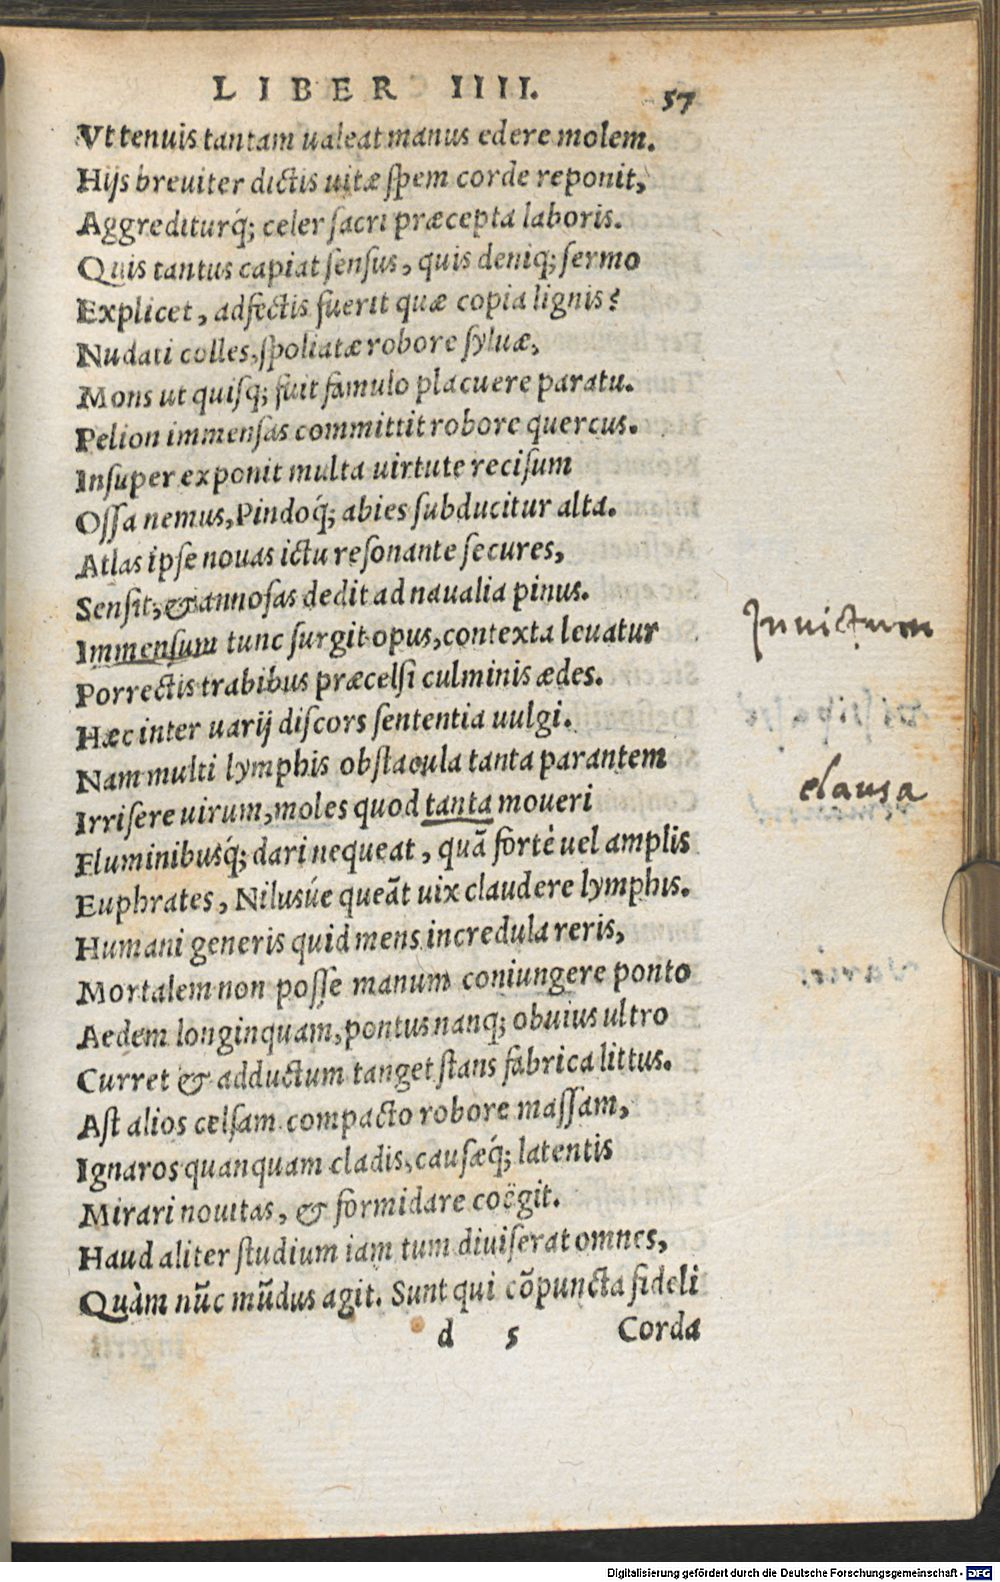 LIBER IIII. 57
Vt tenuis tantam ualeat manus edere molem.
Hijs breuiter dictis uitæ spem corde reponit,
Aggrediturq́; celer sacri præcepta laboris.
Quis tantus capiat sensus, quis deniq; sermo
Explicet, adfectis fuerit quæ copia lignis?
Nudati colles, spoliatæ robore syluæ,
Mons ut quisq; fuit famulo placuere paratu.
Pelion immensas committit robore quercus.
Insuper exponit multa uirtute recisum
Ossa nemus, Pindoq́; abies subducitur alta.
Atlas ipse nouas ictu resonante secures,
Sensit, & annosas dedit ad naualia pinus.
Immensum tunc surgit opus, contexta leuatur
Inuictum
Porrectis trabibus præcelsi culminis ædes.
Hæc inter uarij discors sententia uulgi.
Nam multi lymphis obstacula tanta parantem
clausa
Irrisere uirum, moles quod tanta moueri
Fluminibusq́; dari nequeat, quā fortè uel amplis
Euphrates, Nilusúe queāt uix claudere lymphis.
Humani generis quid mens incredula reris,
Mortalem non posse manum coniungere ponto
Aedem longinquam, pontus nanq; obuius ultro
Curret & adductum tanget stans fabrica littus.
Ast alios celsam compacto robore massam,
Ignaros quanquam cladis, causæq́; latentis
Mirari nouitas, & formidare coëgit.
Haud aliter studium iam tum diuiserat omnes,
Quàm nūc mūdus agit. Sunt qui cōpuncta fideli
d 5 Corda
Digitalisierung gefördert durch die Deutsche Forschungsgemeinschaft - DFG